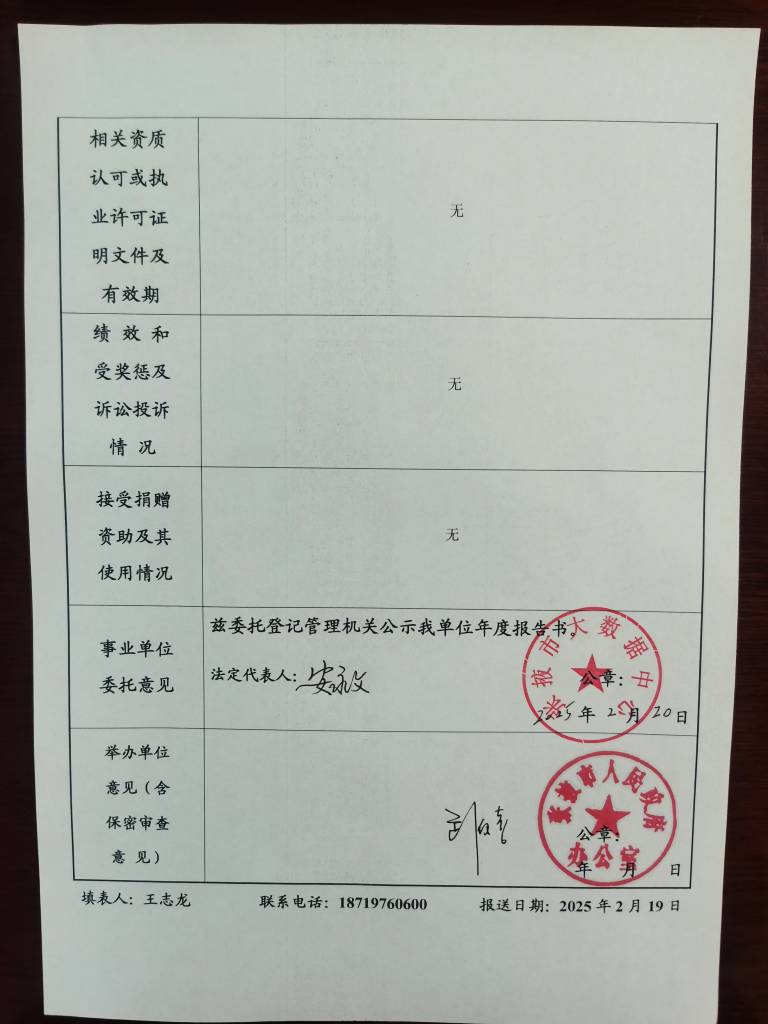 相关资质
认可或执
业许可证
明文件及
有效期
无
绩 效 和
受奖惩及
诉讼投诉
情 况
无
接受捐赠
资助及其
使用情况
无
事业单位
委托意见
兹委托登记管理机关公示我单位年度报告书。
法定代表人：
张掖市大数据中心
公章：
2025年 2月 20日
举办单位
意见（含
保密审查
意 见）
张掖市人民政府
办公室
公章：
年 月 日
填表人：王志龙 联系电话：18719760600 报送日期：2025年2月19日